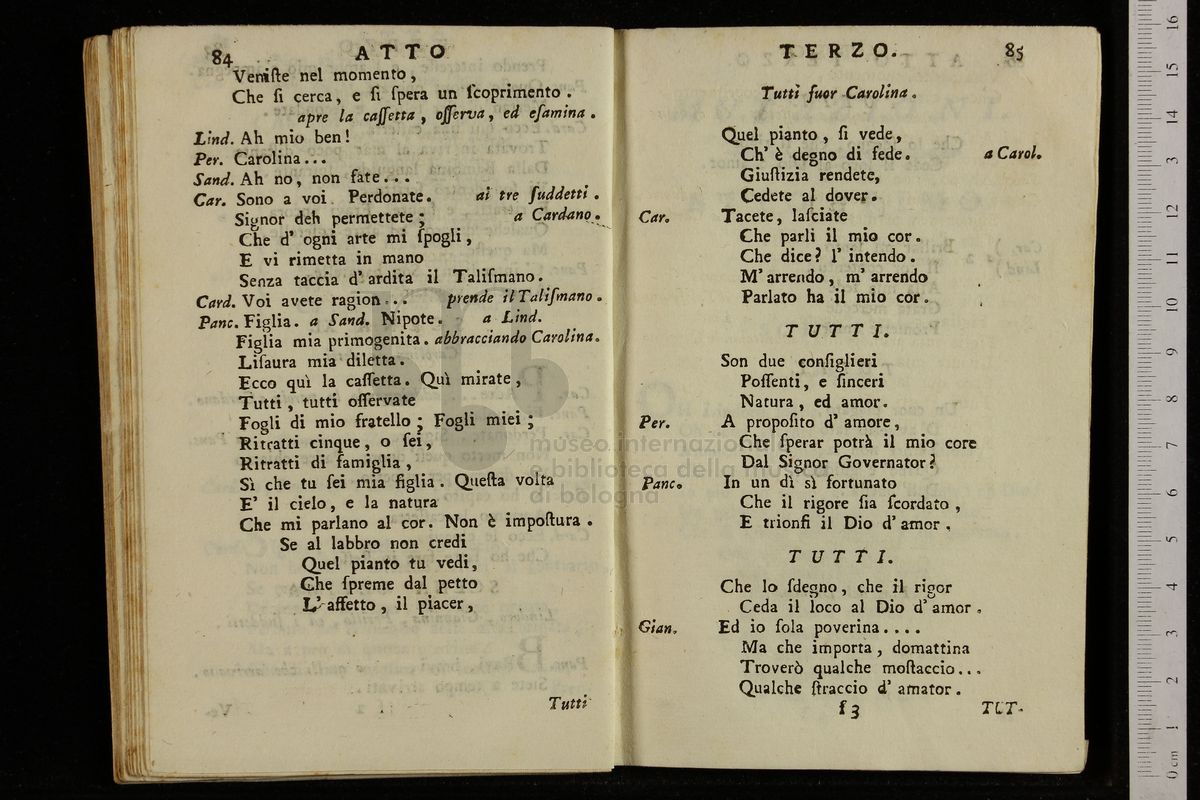 84 ATTO
Veniſte nel momento,
Che ſi cerca, e ſi ſpera un ſcoprimento.
apre la caſſetta, oſſerva, ed eſamina.
Lind. Ah mio ben!
Per. Carolina...
Sand. Ah no, non fate...
Car. Sono a voi. Perdonate. ai tre ſuddetti.
Signor deh permettete; a Cardano.
Che d' ogni arte mi ſpogli,
E vi rimetta in mano
Senza taccia d' ardita il Taliſmano.
Card. Voi avete ragion... prende il Taliſmano.
Panc. Figlia. a Sand. Nipote. a Lind.
Figlia mia primogenita. abbracciando Carolina.
Liſaura mia diletta.
Ecco quì la caſſetta. Quì mirate,
Tutti, tutti oſſervate
Fogli di mio fratello; Fogli miei;
Ritratti cinque, o ſei,
Ritratti di famiglia,
Sì che tu ſei mia figlia. Queſta volta
E' il cielo, e la natura
Che mi parlano al cor. Non è impoſtura.
Se al labbro non credi
Quel pianto tu vedi,
Che ſpreme dal petto
L' affetto, il piacer,
Tutti
TERZO. 85
Tutti fuor Carolina.
Quel pianto, ſi vede,
Ch' è degno di fede. a Carol.
Giuſtizia rendete,
Cedete al dover.
Car. Tacete, laſciate
Che parli il mio cor.
Che dice? l' intendo.
M' arrendo, m' arrendo
Parlato ha il mio cor.
TUTTI.
Son due conſiglieri
Poſſenti, e ſinceri
Natura, ed amor.
Per. A propoſito d' amore,
Che ſperar potrà il mio core
Dal Signor Governator?
Panc. In un dì sì fortunato
Che il rigore ſia ſcordato,
E trionfi il Dio d' amor.
TUTTI.
Che lo ſdegno, che il rigor
Ceda il loco al Dio d' amor.
Gian. Ed io ſola poverina....
Ma che importa, domattina
Troverò qualche moſtaccio...
Qualche ſtraccio d' amator.
f 3 TUT-
museo internazionale
e biblioteca della musica
di bologna
0 cm 1 2 3 4 5 6 7 8 9 10 11 12 13 14 15 16